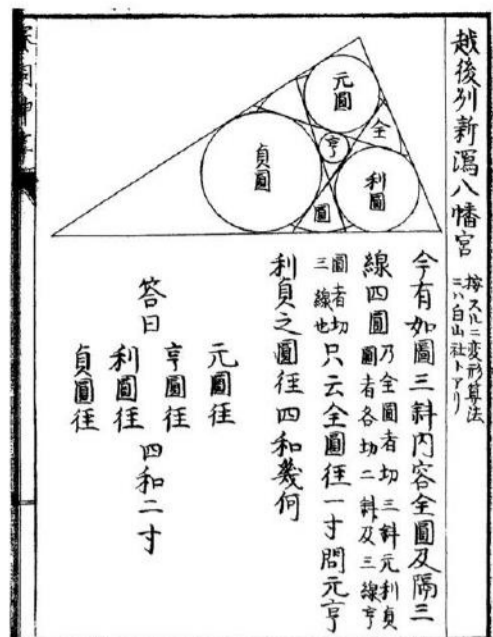 越後列新瀉八幡宮
按スルニ変形算法
ニハ白山社トアリ
元圓
全
亨
利圓
圓
貞圓
今有如圖三斜内容全圓及隔三
線四圓
乃全圓者切三斜元利貞
圓者各切二斜及三線亨
圓者切
三線也
只云全圓径一寸問元亨
利貞之圓径四和幾何
答曰
元圓径
亨圓径
利圓径
貞圓径
四和二寸